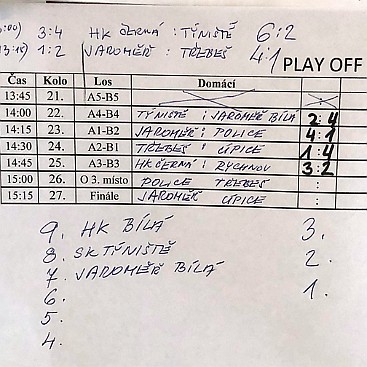 :00) 3:4 HK ČERNÁ : TÝNIŠTĚ 6:2
13:15) 1:2 JAROMĚŘ : TŘEBEŠ 4:1
PLAY OFF
Čas Kolo Los Domácí
13:45 21. A5-B5 :
14:00 22. A4-B4 TÝNIŠTĚ : JAROMĚŘ BÍLÁ 2:4
14:15 23. A1-B2 JAROMĚŘ : POLICE 4:1
14:30 24. A2-B1 TŘEBEŠ : ÚPICE 1:4
14:45 25. A3-B3 HK ČERNÁ : RYCHNOV 3:2
15:00 26. O 3. místo POLICE TŘEBEŠ :
15:15 27. Finále JAROMĚŘ ÚPICE :
9. HK BÍLÁ 3.
8. SK TÝNIŠTĚ 2.
7. JAROMĚŘ BÍLÁ
6. 1.
5.
4.